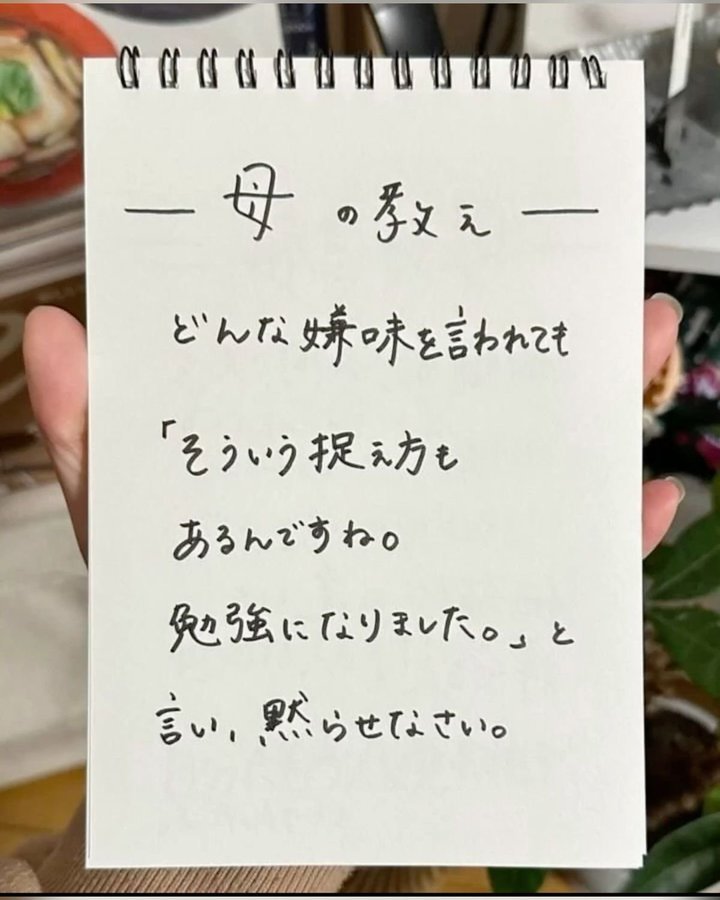 ― 母の教え ―
どんな嫌味を言われても
「そういう捉え方も
あるんですね。
勉強になりました。」と
言い、黙らせなさい。